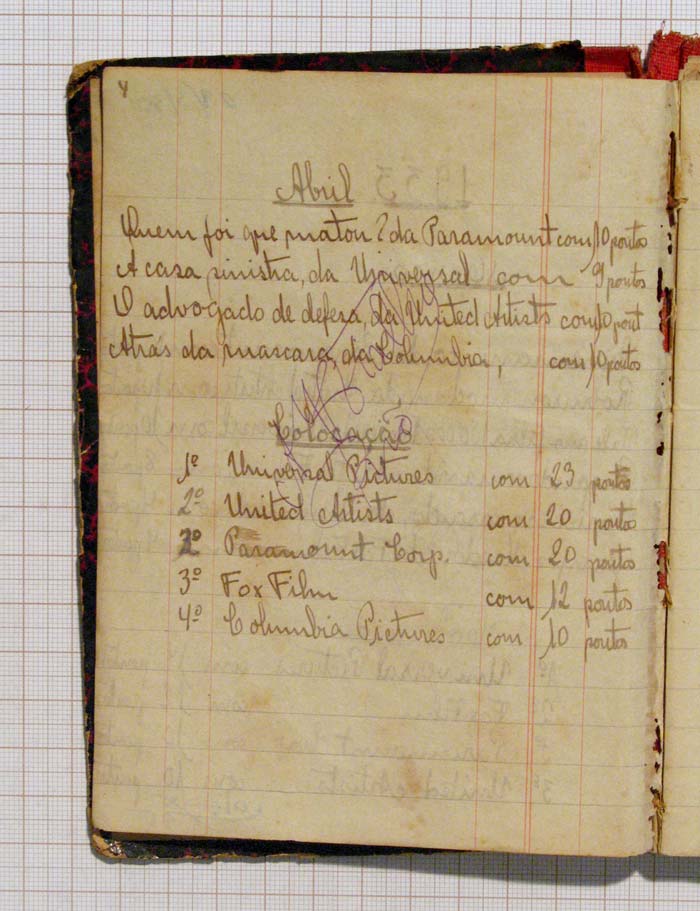 4
Abril
Quem foi que matou? da Paramount com 10 pontos
A casa sinistra, da Universal com 9 pontos
O advogado de defesa, da United Artists com 10 pont
Atrás da mascara, da Columbia, com 10 pontos
Colocação
1º Universal Pictures com 23 pontos
2º United Artists com 20 pontos
2º Paramount Corp. com 20 pontos
3º Fox Film com 12 pontos
4º Columbia Pictures com 10 pontos